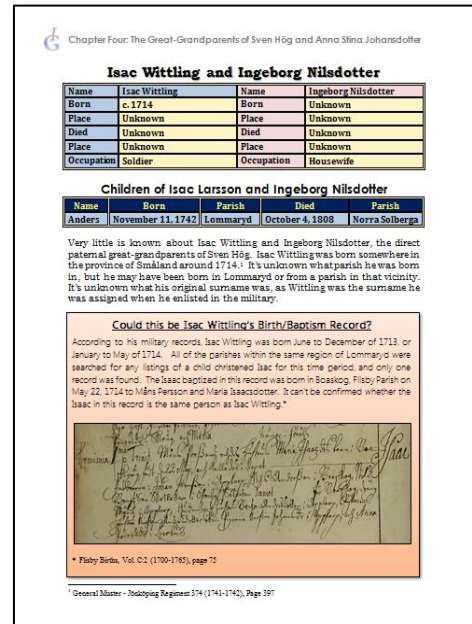 Chapter Four: The Great-Grandparents of Sven Hög and Anna Stina Johansdotter
Isac Wittling and Ingeborg Nilsdotter
Name Isac Wittling Name Ingeborg Nilsdotter
Born c. 1714 Born Unknown
Place Unknown Place Unknown
Died Unknown Died Unknown
Place Unknown Place Unknown
Occupation Soldier Occupation Housewife
Children of Isac Larsson and Ingeborg Nilsdotter
Name Born Parish Died Parish
Anders November 11, 1742 Lommaryd October 4, 1808 Norra Solberga
Very little is known about Isac Wittling and Ingeborg Nilsdotter, the direct
paternal great-grandparents of Sven Hög. Isac Wittling was born somewhere in
the province of Småland around 1714.¹ It's unknown what parish he was born
in, but he may have been born in Lommaryd or from a parish in that vicinity.
It's unknown what his original surname was, as Wittling was the surname he
was assigned when he enlisted in the military.
Could this be Isac Wittling's Birth/Baptism Record?
According to his military records, Isac Wittling was born June to December of 1713, or
January to May of 1714. All of the parishes within the same region of Lommaryd were
searched for any listings of a child christened Isac for this time period, and only one
record was found. The Isaac baptized in this record was born in Boaskog, Flisby Parish on
May 22, 1714 to Måns Persson and Maria Isaacsdotter. It can't be confirmed whether the
Isaac in this record is the same person as Isac Wittling.*
Isaac
* Flisby Births, Vol. C:2 (1700-1765), page 75
¹ General Muster - Jönköping Regiment 374 (1741-1742), Page 397